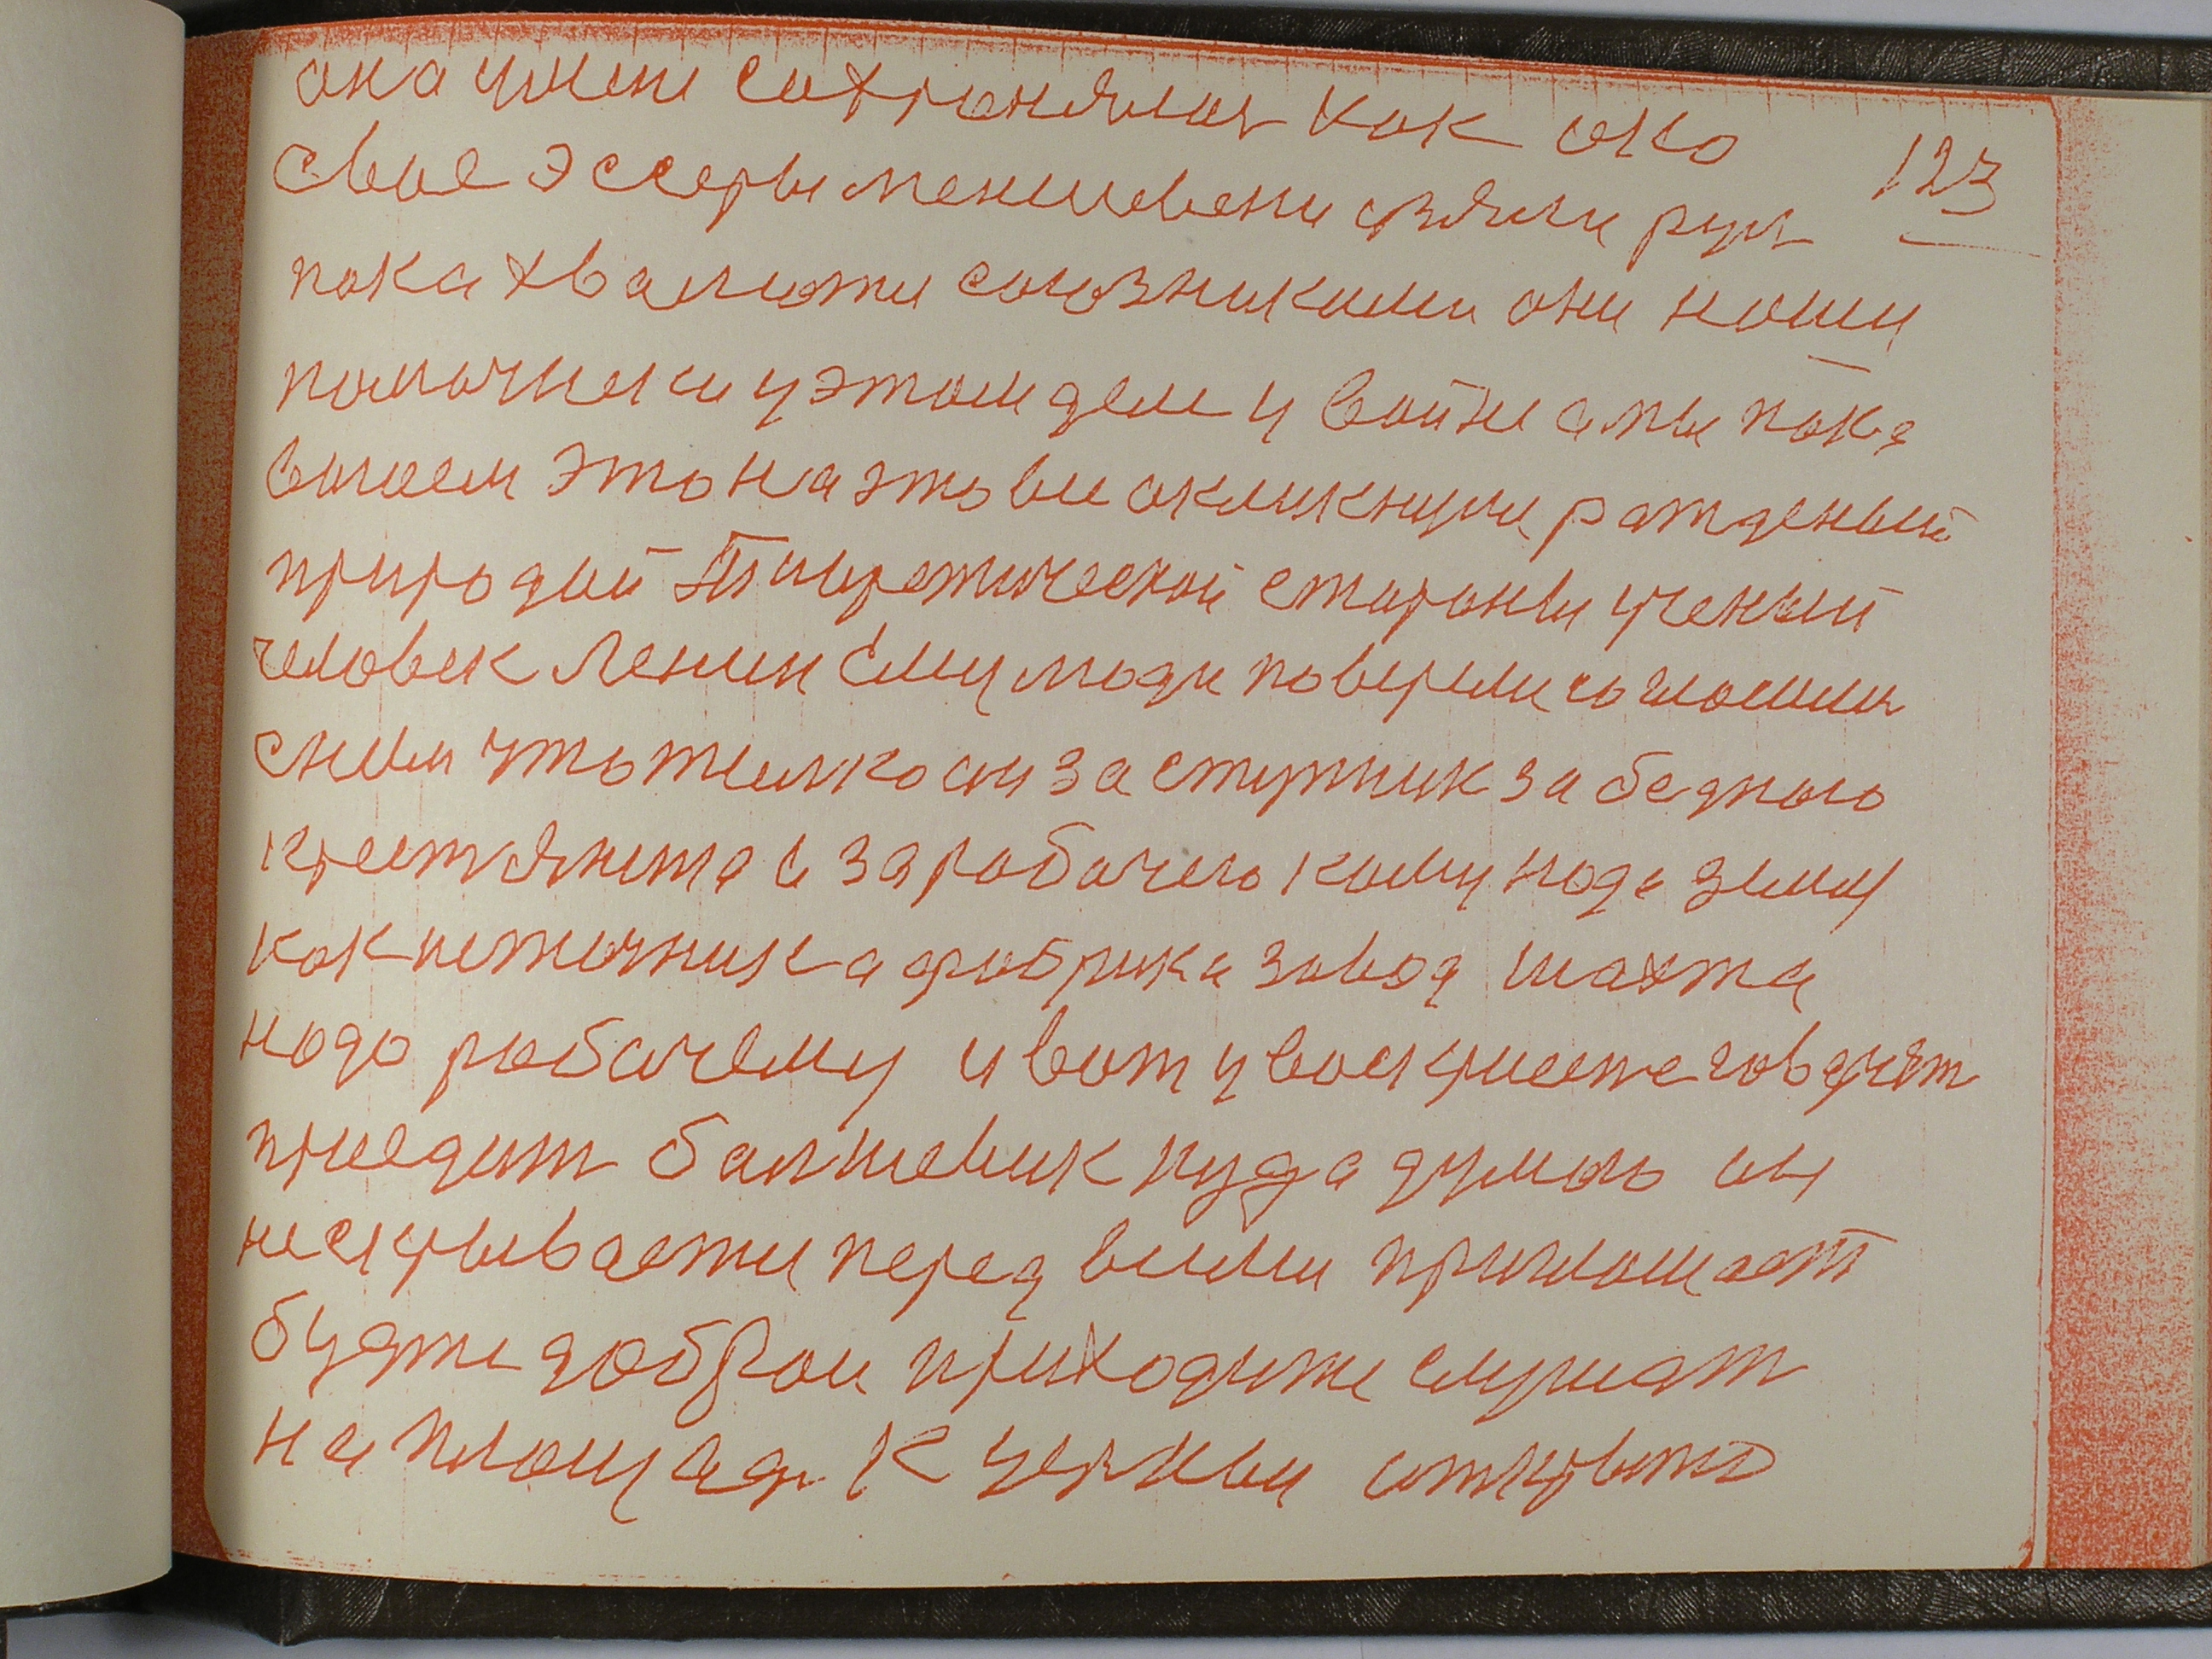 она уними сохронялас как око
123
свое эссеры меншевени свяли рук
пока хвалити союзниками они наши
помочники у этом деле у войне а мы пока
воюем это на этови окликнулце ратденый
природый Тиоретической стороны ученый
человек Ленин Ему люди поверили согласили
сним что тилко он заступник за бедного
крестянина и за рабочего кому нада земля
как источник а фабрика завод шахта
надо рабочему и вот у воскрисене говарят
приедит балшевик нуда думаю он
нескрывает перед вими приглашает
будте доброи приходите слушат
на площад к церквы открыто